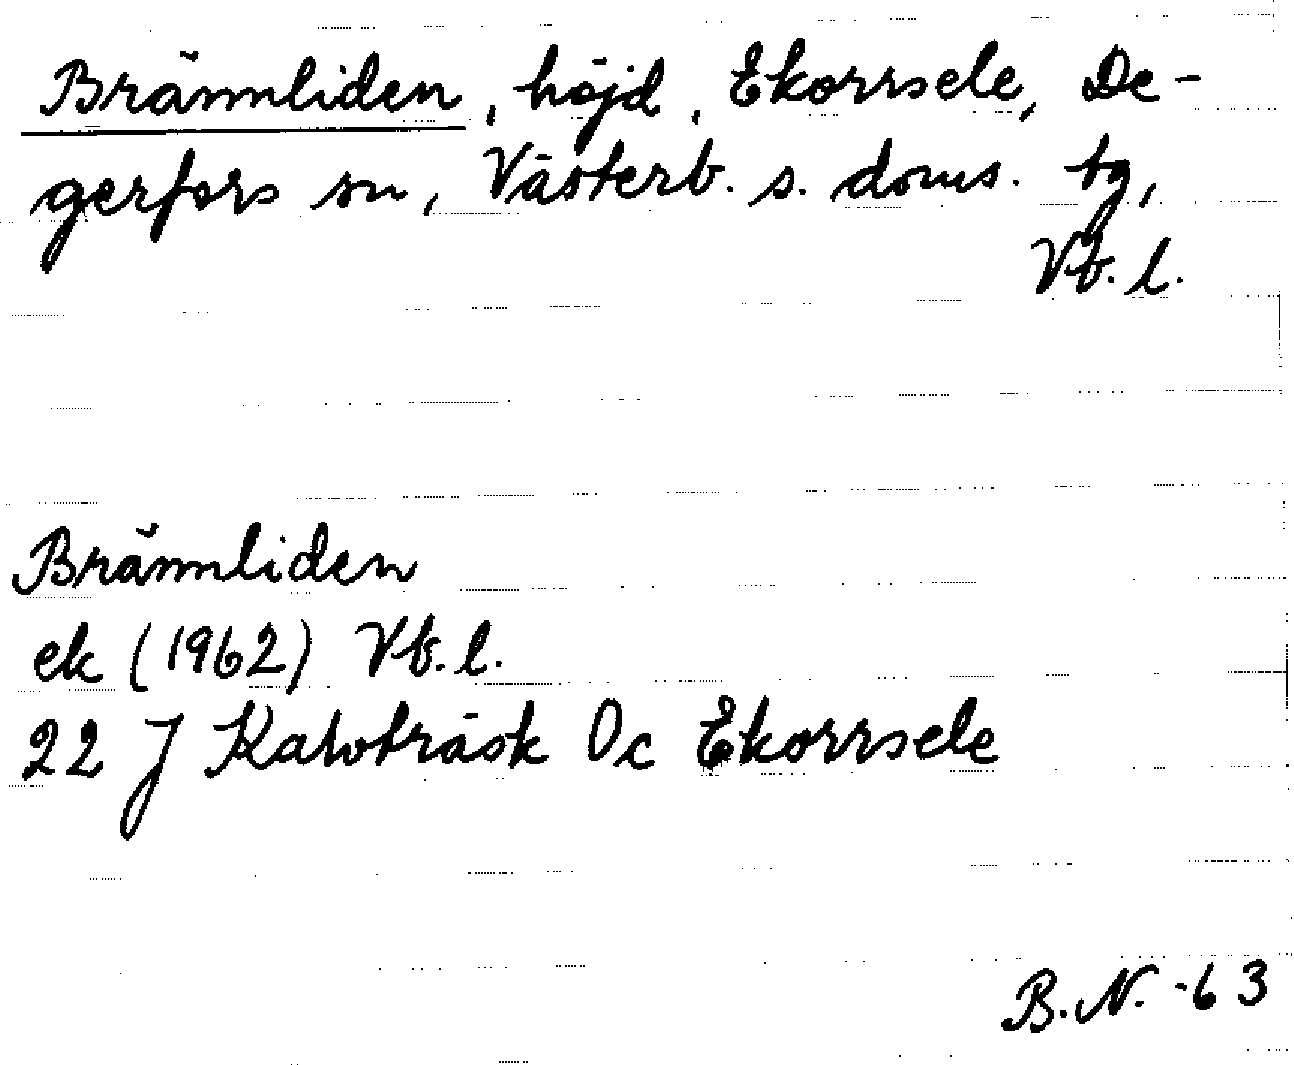 Brännliden, höjd, Ekorrsele, De-
gerfors sn, Västerb. s. doms. tg,
Vb. l.
Brännliden
ek (1962) Vb. l.
22 J Kalvträsk Oc Ekorrsele
B.N. -63